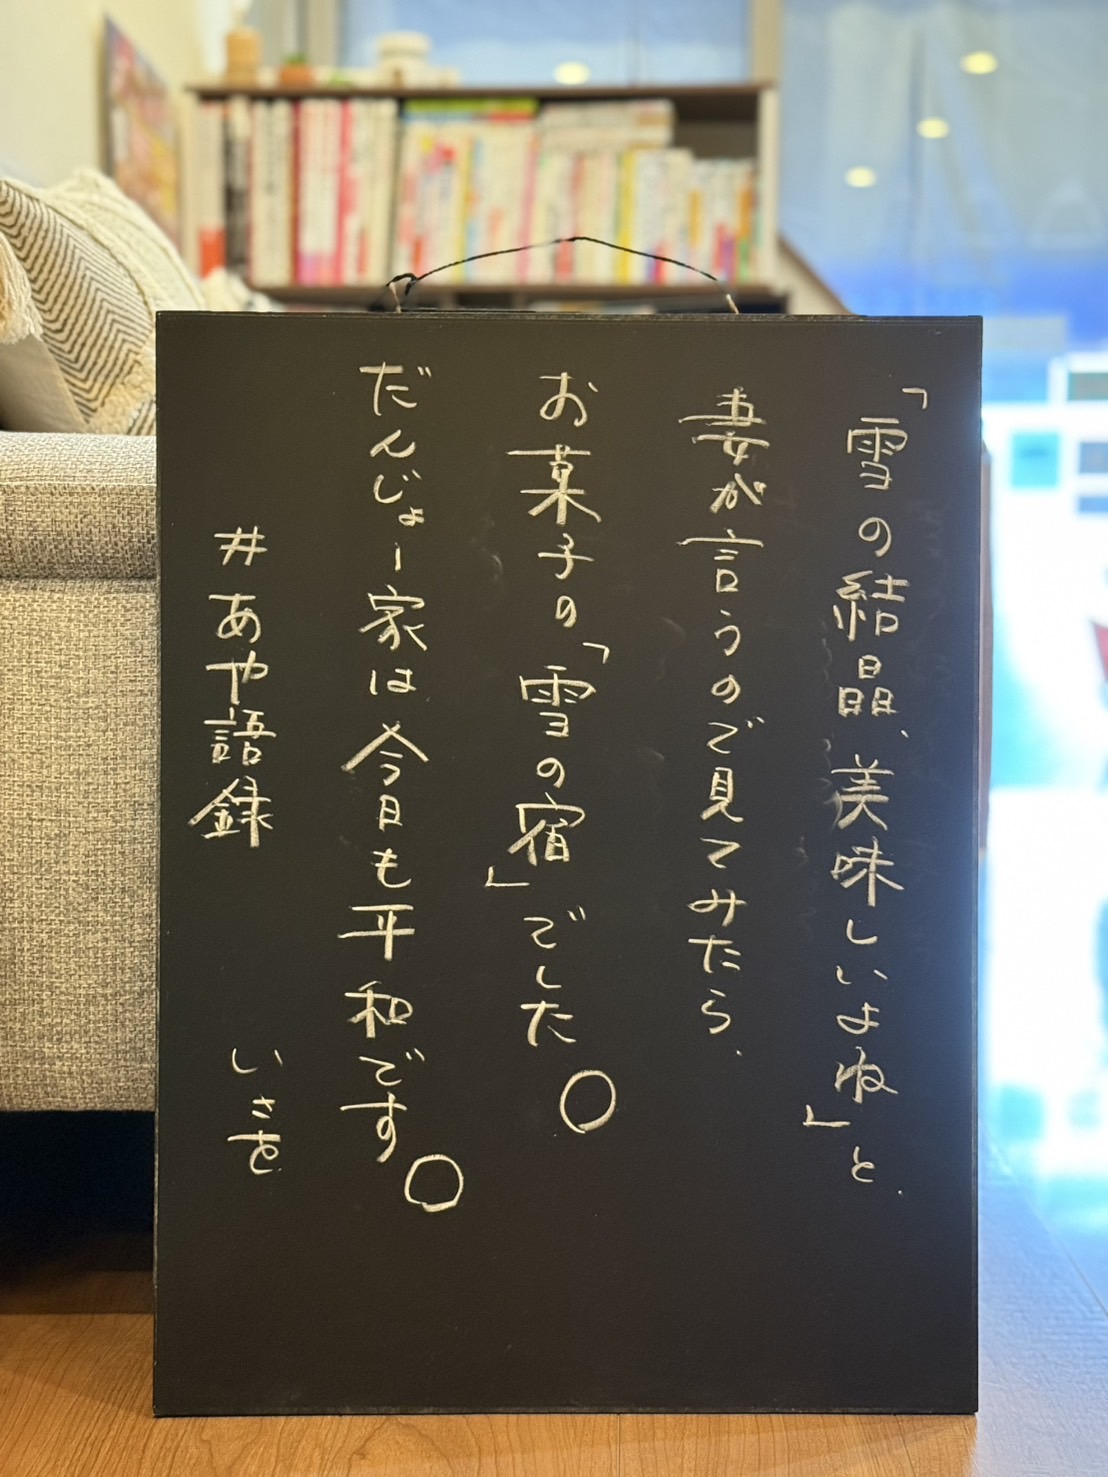 「雪の結晶、美味しいよね」と、
妻が言うので見てみたら、
お菓子の「雪の宿」でした。
だんじょー家は今日も平和です。
#あや語録
いさを